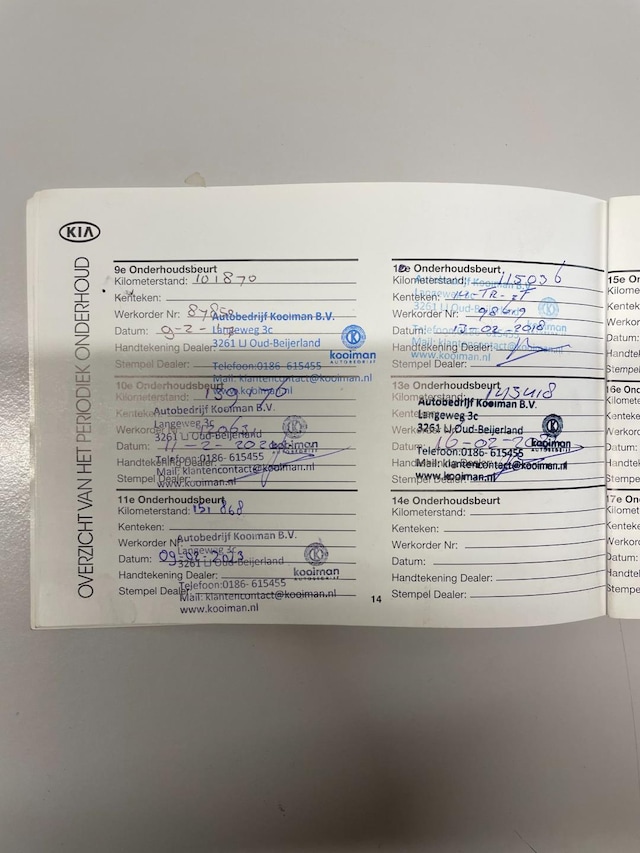 KIA
OVERZICHT VAN HET PERIODIEK ONDERHOUD
9e Onderhoudsbeurt
Kilometerstand: 101870
Kenteken:
Werkorder Nr:
Datum: 9-2-
Handtekening Dealer:
Stempel Dealer:
Autobedrijf Kooiman B.V.
Langeweg 3c
3261 LJ Oud-Beijerland
Telefoon:0186- 615455
Mail: klantencontact@kooiman.nl
www.kooiman.nl
kooiman
AUTOBEDRIJF
10e Onderhoudsbeurt
Kilometerstand: 139
Kenteken:
Werkorder Nr:
Datum: 11-2-
Handtekening Dealer:
Stempel Dealer:
Autobedrijf Kooiman B.V.
Langeweg 3c
3261 LJ Oud-Beijerland
Telefoon:0186- 615455
Mail: klantencontact@kooiman.nl
www.kooiman.nl
kooiman
11e Onderhoudsbeurt
Kilometerstand: 151 868
Kenteken:
Werkorder Nr:
Datum: 09-02-2023
Handtekening Dealer:
Stempel Dealer:
Autobedrijf Kooiman B.V.
Langeweg 3c
3261 LJ Oud-Beijerland
Telefoon:0186- 615455
Mail: klantencontact@kooiman.nl
www.kooiman.nl
kooiman
AUTOBEDRIJF
12e Onderhoudsbeurt
Kilometerstand: 115036
Kenteken:
Werkorder Nr:
Datum: 13-02-2018
Handtekening Dealer:
Stempel Dealer:
13e Onderhoudsbeurt
Kilometerstand: 143418
Kenteken:
Werkorder Nr:
Datum: 16-02-
Handtekening Dealer:
Stempel Dealer:
Autobedrijf Kooiman B.V.
Langeweg 3c
3261 LJ Oud-Beijerland
Telefoon:0186- 615455
Mail: klantencontact@kooiman.nl
www.kooiman.nl
kooiman
14e Onderhoudsbeurt
Kilometerstand:
Kenteken:
Werkorder Nr:
Datum:
Handtekening Dealer:
Stempel Dealer:
14
15e On
Kilome
Kenteke
Werkor
Datum:
Handte
Stempe
16e On
17e On